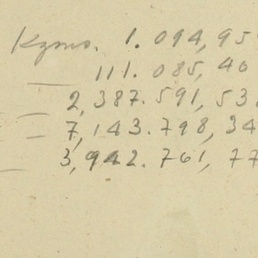 Kzmo. 1.094,95
111.085,40
2,387.591,53
= 7,143.798,34
3,942.761,77